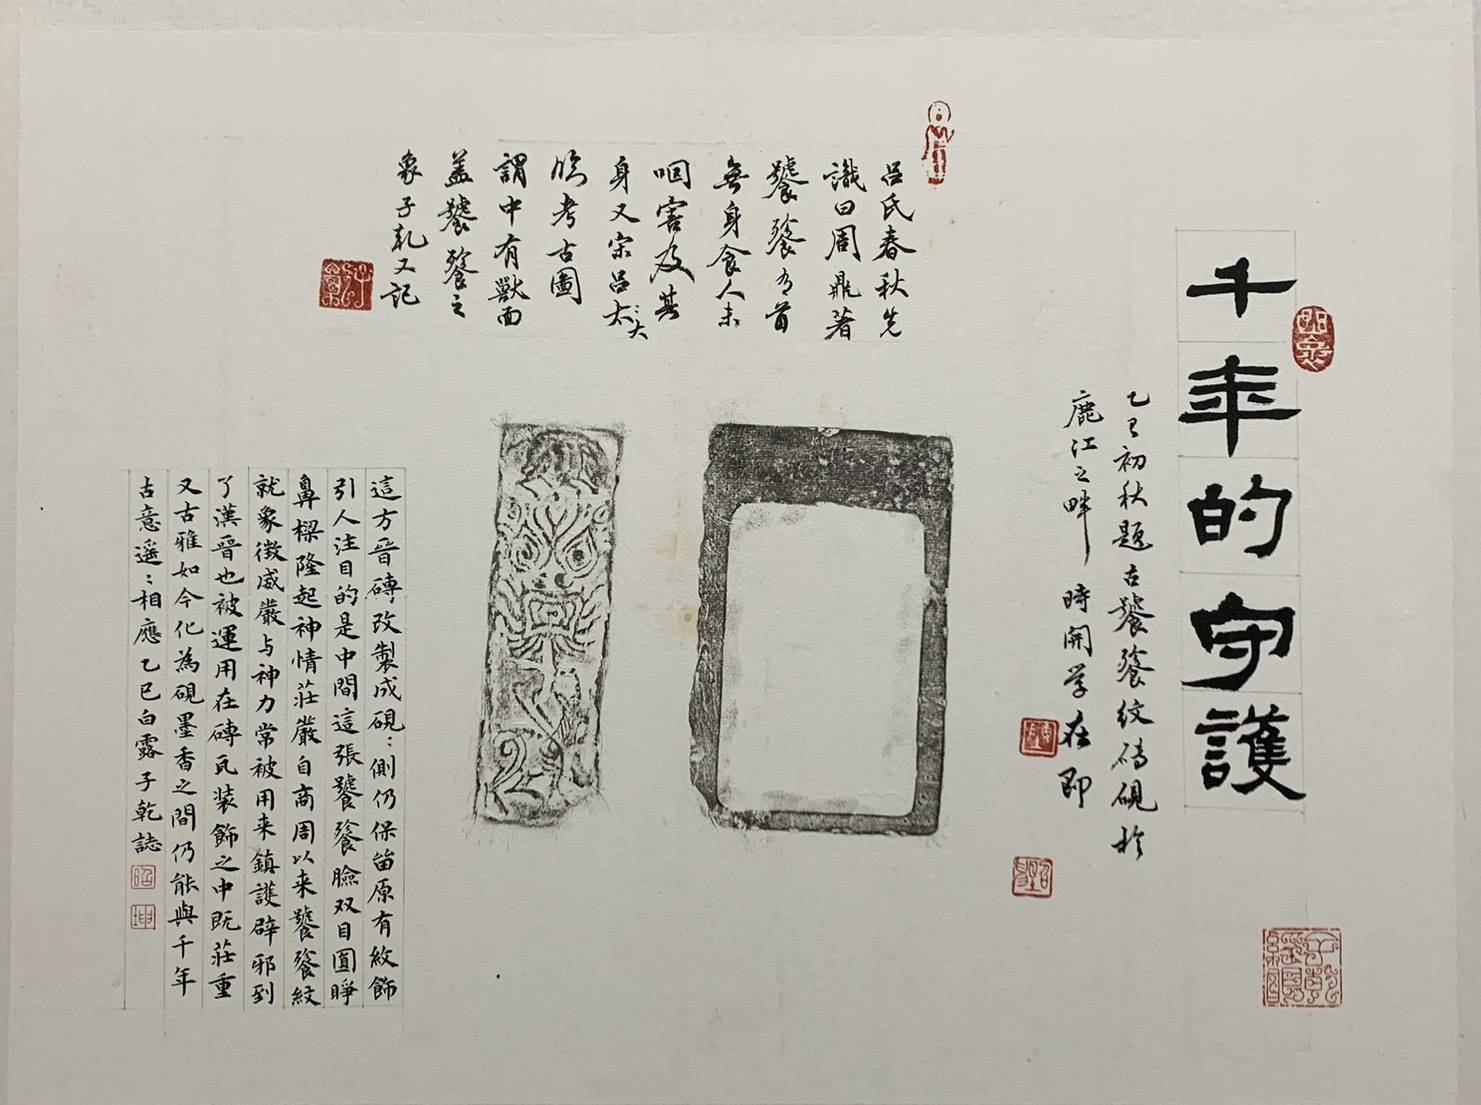 千年的守護
乙巳初秋題古饕餮紋磚硯於
鹿江之畔 時開学在即
呂氏春秋先
識曰周鼎著
饕餮有首
無身食人未
咽害及其
身又宋呂大
臨考古圖
謂中有獸面
盖饕餮之
象子乾又記
這方晉磚改製成硯:側仍保留原有紋飾
引人注目的是中間這張饕餮臉双目圓睜
鼻樑隆起神情莊嚴自商周以来饕餮紋
就象徵威嚴与神力常被用来鎮護辟邪到
了漢晉也被運用在磚瓦装飾之中既莊重
又古雅如今化為硯墨香之間仍能與千年
古意遥:相應乙巳白露子乾誌